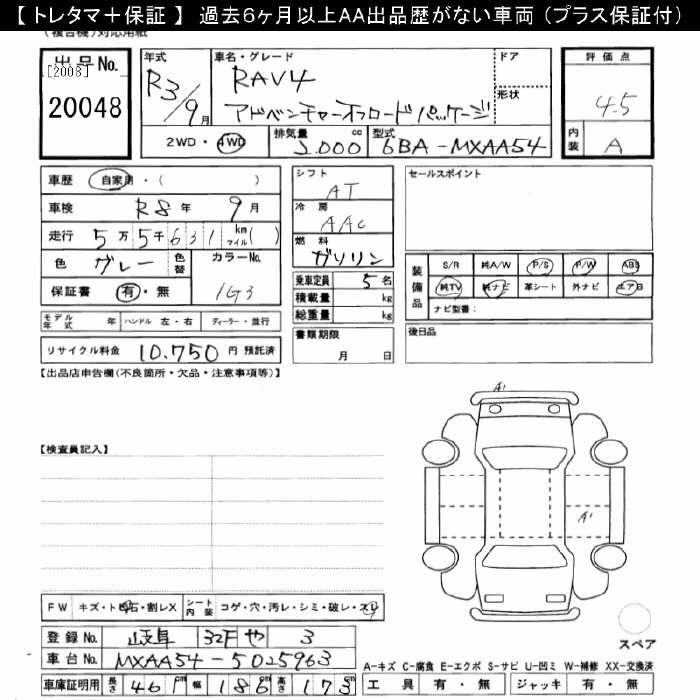 【 トレタマ＋保証 】 過去6ヶ月以上AA出品歴がない車両（プラス保証付）
(複合機)対応用紙
出品No.
[2008]
20048
年式
R3/9月
車名・グレード
RAV4
アドベンチャーオフロードパッケージ
ドア
形状
2WD・4WD
排気量 2,000 cc
型式 6BA-MXAA54
評価点
4.5
内装 A
車歴 自家用・( )
車検 R8年 9月
走行 5万5千631 km マイル( )
色 グレー 色替 カラーNo. 1G3
保証書 有・無
モデル年式 年 ハンドル 左・右 ディーラー・並行
リサイクル料金 10,750円 預託済
シフト AT
冷房 AAC
燃料 ガソリン
乗車定員 5名
積載量 kg
総重量 kg
書類期限
月 日
セールスポイント
装備品
S/R 純A/W P/S P/W ABS
純TV 純ナビ 革シート 外ナビ エアB
ナビ型番：
後日品
【出品店申告欄(不良箇所・欠品・注意事項等)】
【検査員記入】
A1
A1
FW キズ・ト石・割レX シート内装 コゲ・穴・汚レ・シミ・破レ・スレ
登録No. 岐阜 32F や 3
車台No. MXAA54-5025963
車庫証明用 長さ 461cm 幅 186cm 高さ 173cm
スペア
A-キズ C-腐食 E-エクボ S-サビ U-凹ミ W-補修 XX-交換済
工具 有・無 ジャッキ 有・無